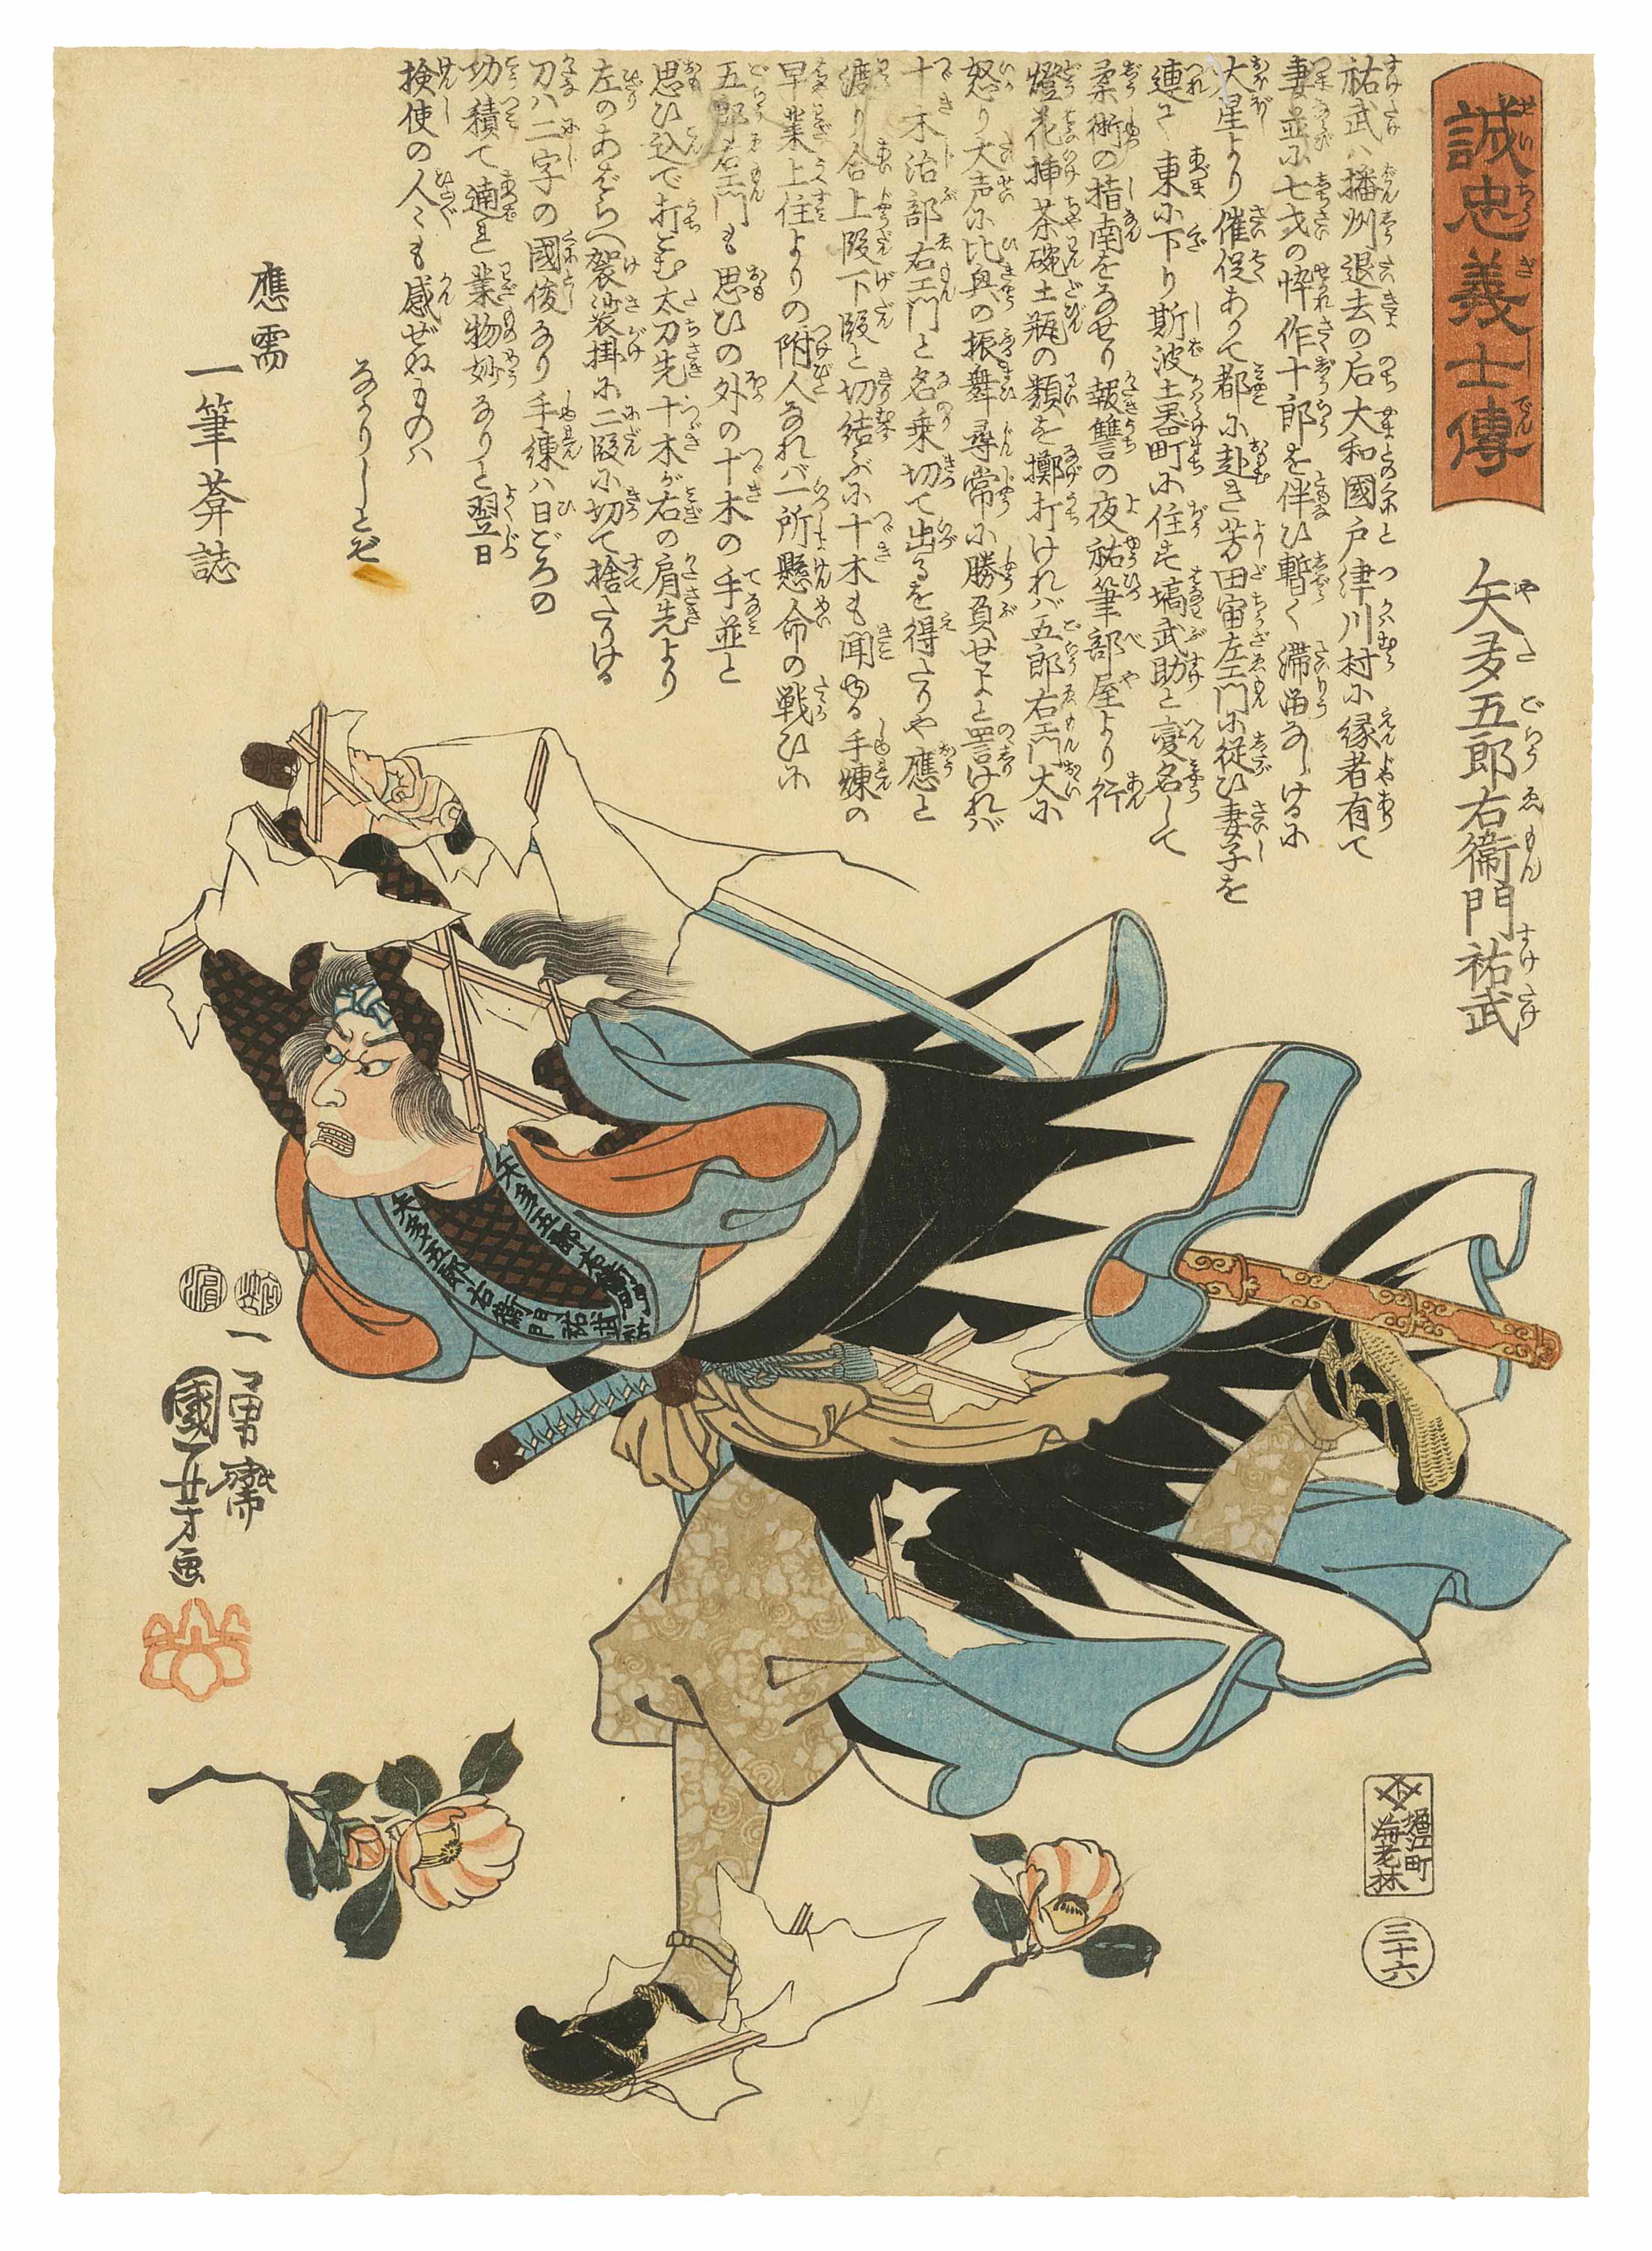 誠忠義士傳
矢多五郎右衞門祐武
祐武ハ播州退去の后大和國戸津川村に縁者有て
妻並に七才の悴作十郎を伴ひ暫く滞畄なしけるに
大星より催促あつて都に赴き芳田宙左エ門に従ひ妻子を
連て東に下り斯波土器町に住す塙武助と変名して
柔術の指南をなせり報讐の夜祐筆部屋より行
燈花挿茶碗土瓶の類を擲打けれバ五郎右エ門大に
怒り大声に比興の振舞尋常に勝負せよと詈けれバ
十木治部右エ門と名乗切て出るを得たりや應と
渡り合上段下段と切結ぶに十木も聞ゆる手煉の
早業上住よりの附人なれバ一所懸命の戦ひに
五郎右エ門も思ひの外の十木の手並と
思ひ込で打こむ太刀先十木が右の肩先より
左のあばらへ袈裟掛に二段に切て捨たりける
刀ハ二字の國俊なり手練ハ日ごろの
功積て遖れ業物妙なりと翌日
検使の人々も感ぜぬものハ
なかりしとぞ
應需
一筆葊誌
矢多五郎右衛門
矢多五郎右衛門祐武
濱
一勇齋
國芳画
堀江町
海老林
三十六